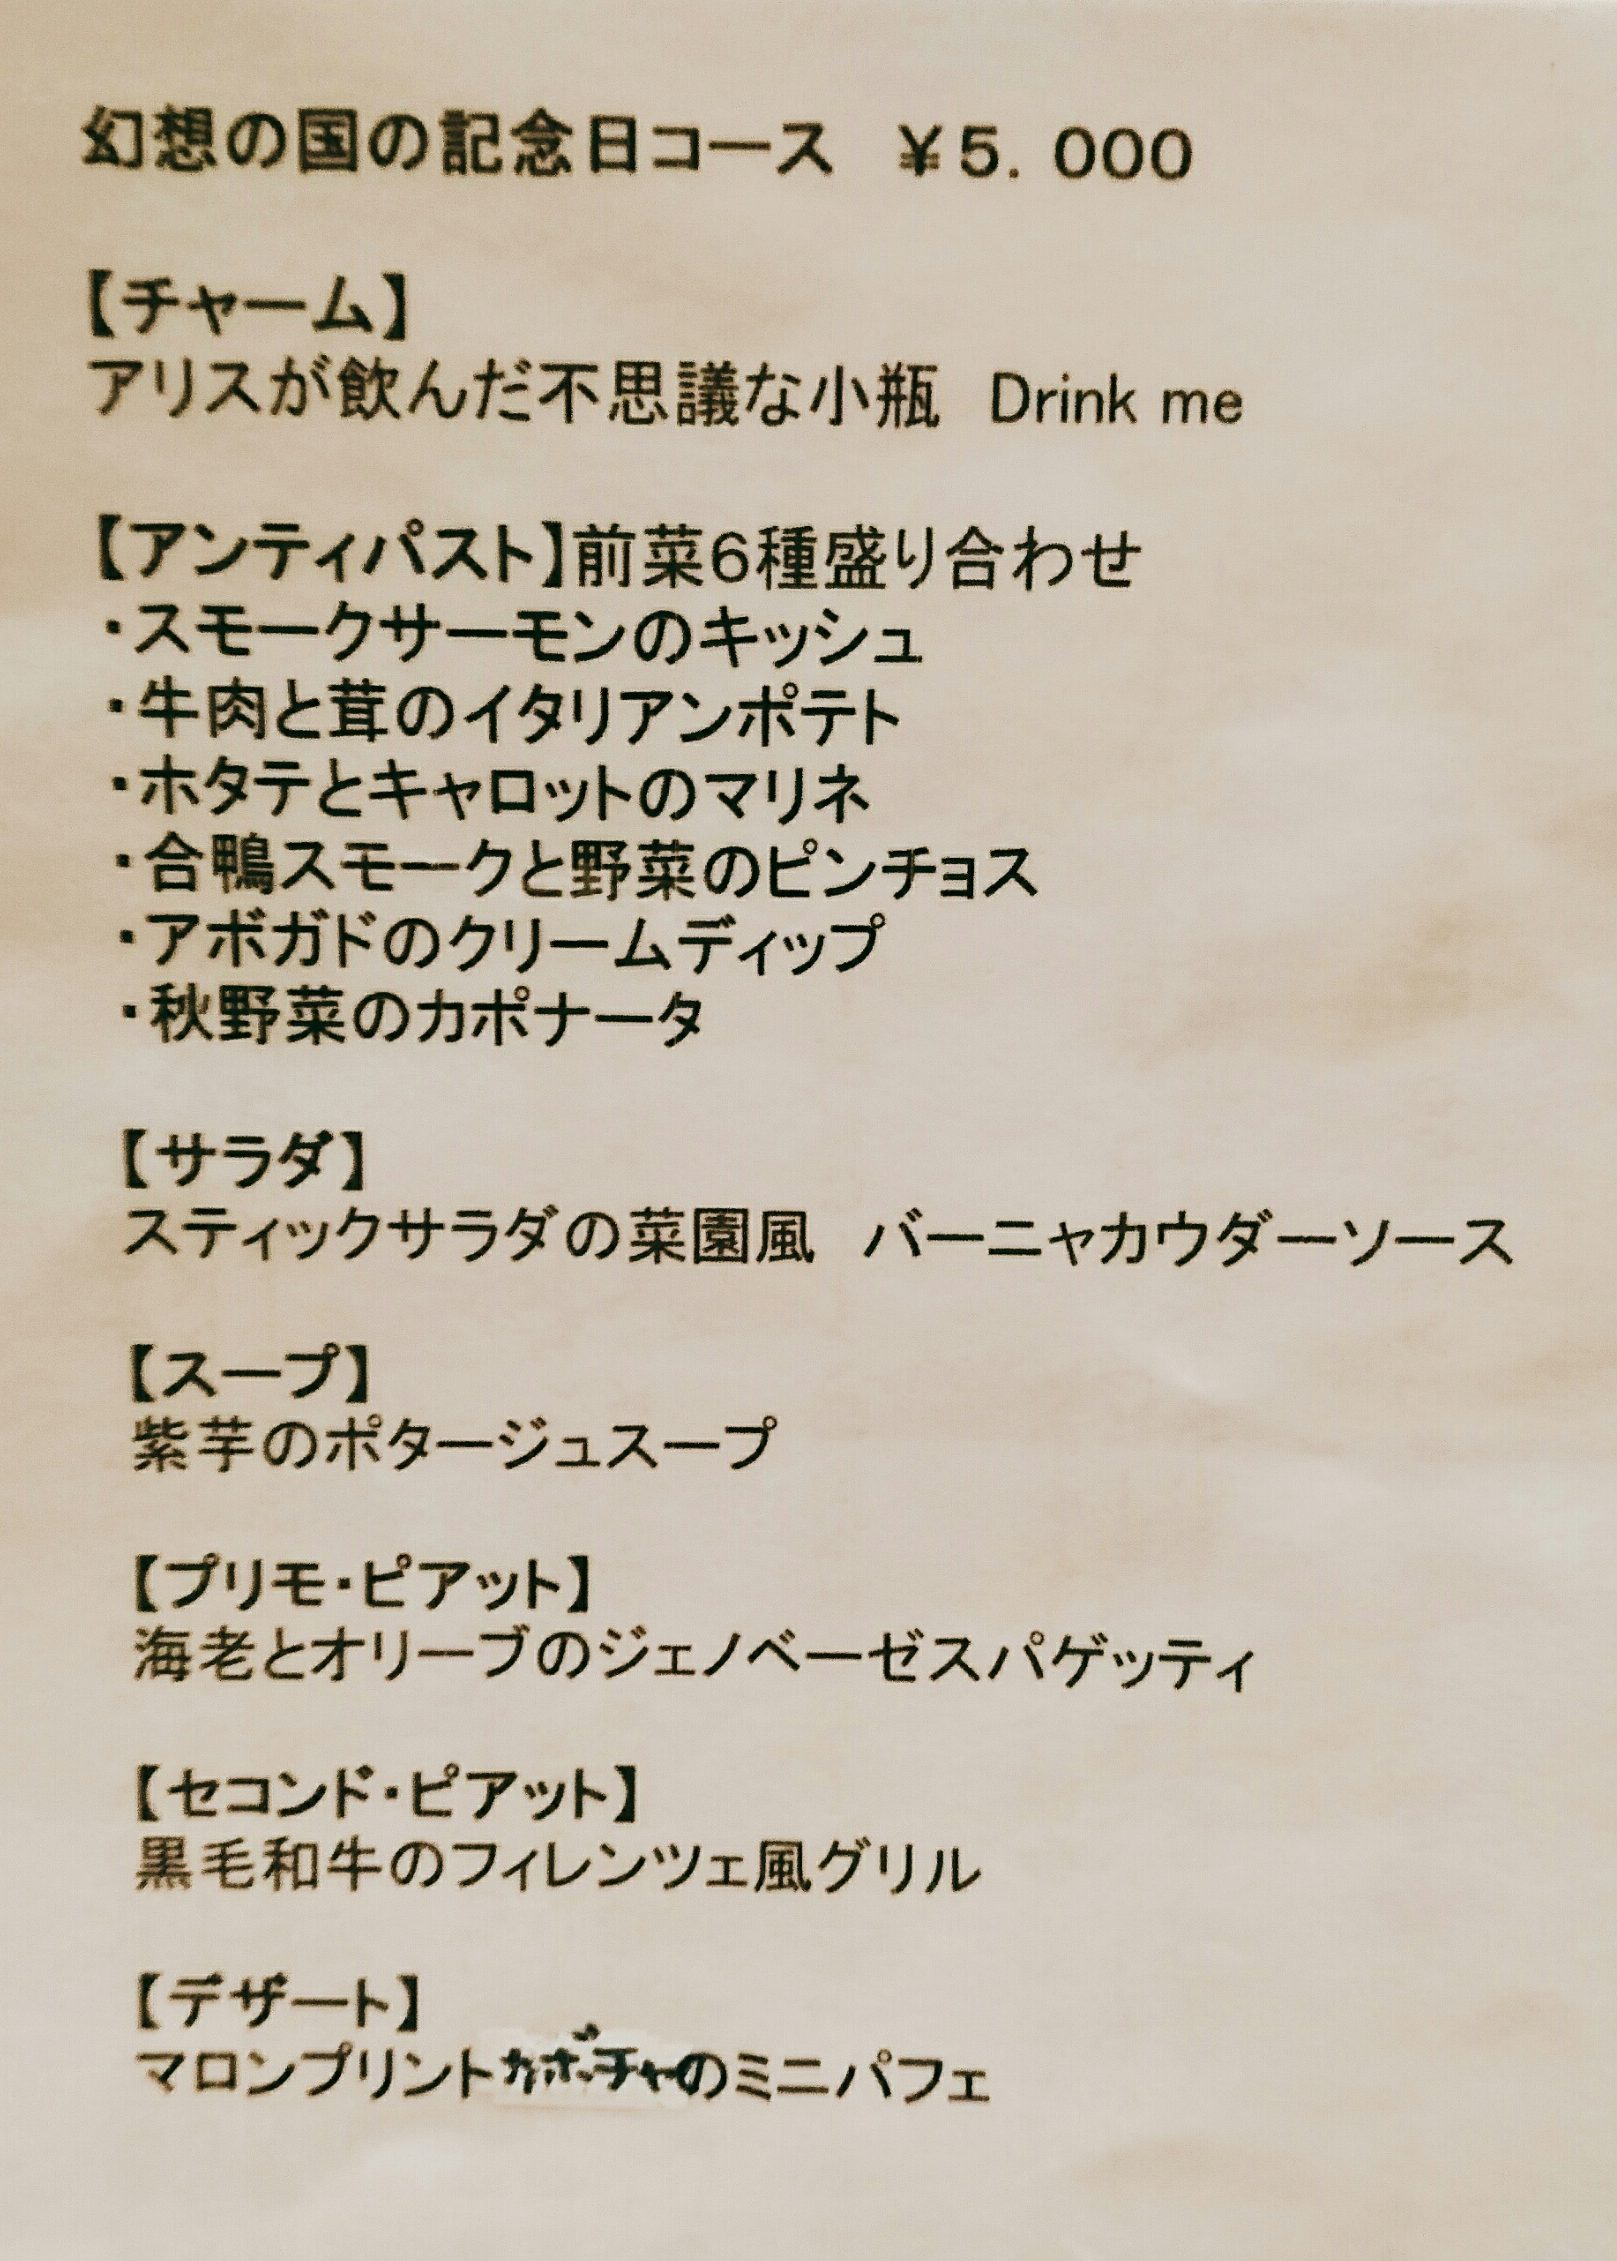 幻想の国の記念日コース ￥5．000
【チャーム】
アリスが飲んだ不思議な小瓶 Drink me
【アンティパスト】前菜6種盛り合わせ
・スモークサーモンのキッシュ
・牛肉と茸のイタリアンポテト
・ホタテとキャロットのマリネ
・合鴨スモークと野菜のピンチョス
・アボガドのクリームディップ
・秋野菜のカポナータ
【サラダ】
スティックサラダの菜園風 バーニャカウダーソース
【スープ】
紫芋のポタージュスープ
【プリモ・ピアット】
海老とオリーブのジェノベーゼスパゲッティ
【セコンド・ピアット】
黒毛和牛のフィレンツェ風グリル
【デザート】
マロンプリントカボチャのミニパフェ